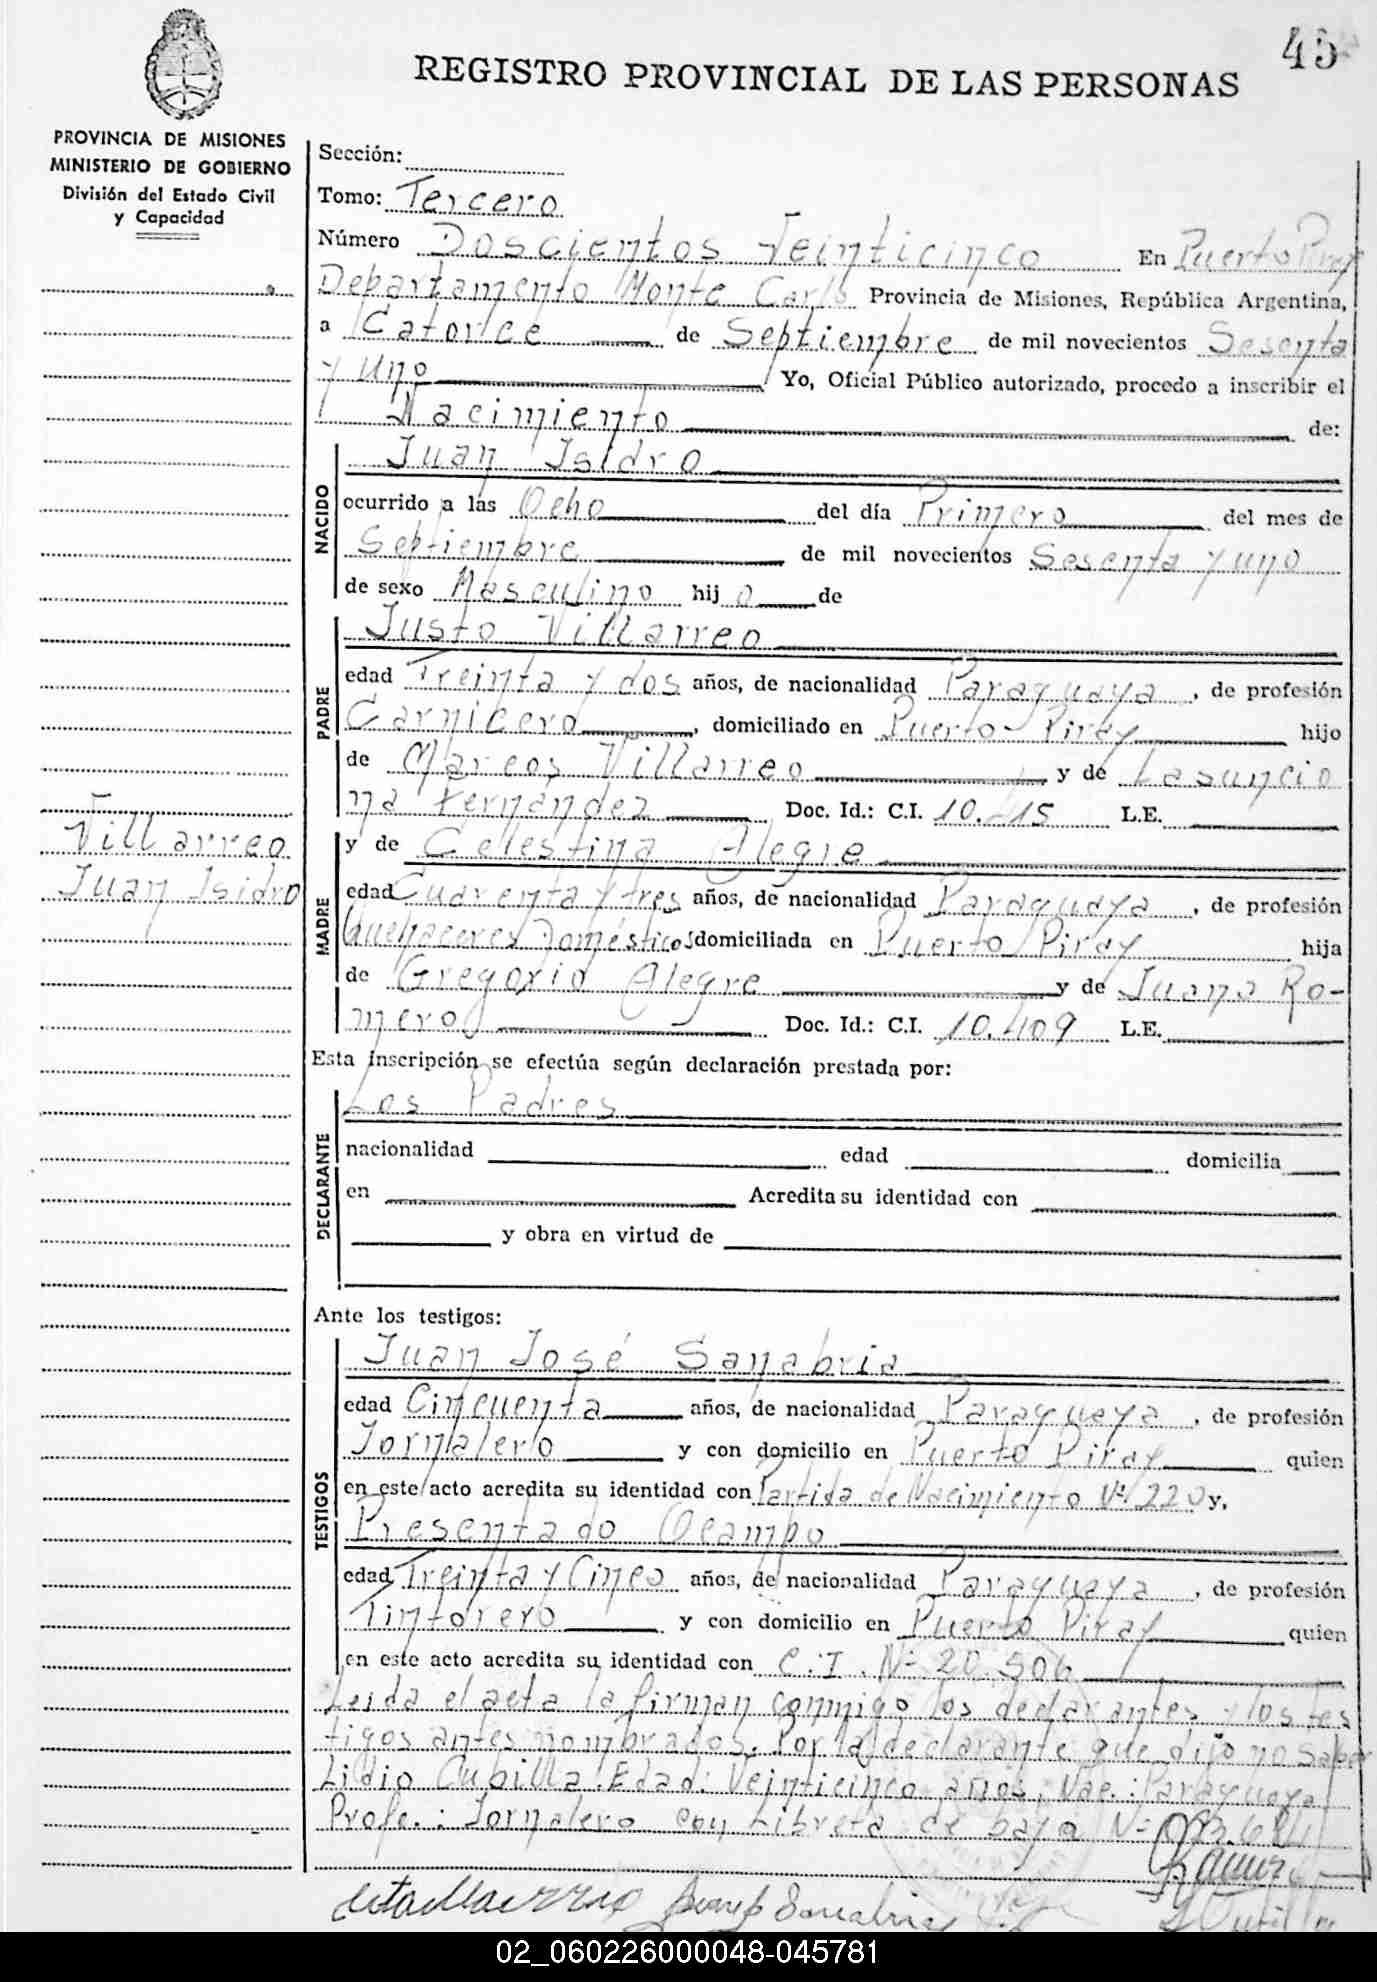 45
REGISTRO PROVINCIAL DE LAS PERSONAS
PROVINCIA DE MISIONES
MINISTERIO DE GOBIERNO
División del Estado Civil
y Capacidad
Sección:
Tomo: Tercero
Número Doscientos Veinticinco En Puerto Piray
Departamento Monte Carlo Provincia de Misiones, República Argentina,
a Catorce de Septiembre de mil novecientos Sesenta
y uno Yo, Oficial Público autorizado, procedo a inscribir el
Nacimiento de:
NACIDO
Juan Isidro
ocurrido a las Ocho del día Primero del mes de
Septiembre de mil novecientos Sesenta y uno
de sexo Masculino hij o de
PADRE
Justo Villarreo
edad Treinta y dos años, de nacionalidad Paraguaya, de profesión
Carnicero, domiciliado en Puerto Piray hijo
de Marcos Villarreo y de Lasuncio
na Fernández Doc. Id.: C.I. 10.415 L.E.
Villarreo
Juan Isidro
MADRE
y de Celestina Alegre
edad Cuarenta y tres años, de nacionalidad Paraguaya, de profesión
Quehaceres Domésticos domiciliada en Puerto Piray hija
de Gregorio Alegre y de Juana Ro-
mero Doc. Id.: C.I. 10.409 L.E.
Esta inscripción se efectúa según declaración prestada por:
DECLARANTE
Los Padres
nacionalidad edad domicilia
en Acredita su identidad con
y obra en virtud de
Ante los testigos:
TESTIGOS
Juan José Sanabria
edad Cincuenta años, de nacionalidad Paraguaya, de profesión
Jornalero y con domicilio en Puerto Piray quien
en este acto acredita su identidad con Partida de Nacimiento Nº 220 y,
Presentado Ocampo
edad Treinta y Cinco años, de nacionalidad Paraguaya, de profesión
Tintorero y con domicilio en Puerto Piray quien
en este acto acredita su identidad con C.I. Nº 20.506
Leida el acta la firman conmigo los declarantes y los tes
tigos antes nombrados. Por la declarante que dijo no saber
Lidio Cubilla. Edad: Veinticinco años, Nac.: Paraguaya
Profe.: Jornalero con Libreta de baja Nº
Juan J Sanabria
02_060226000048-045781